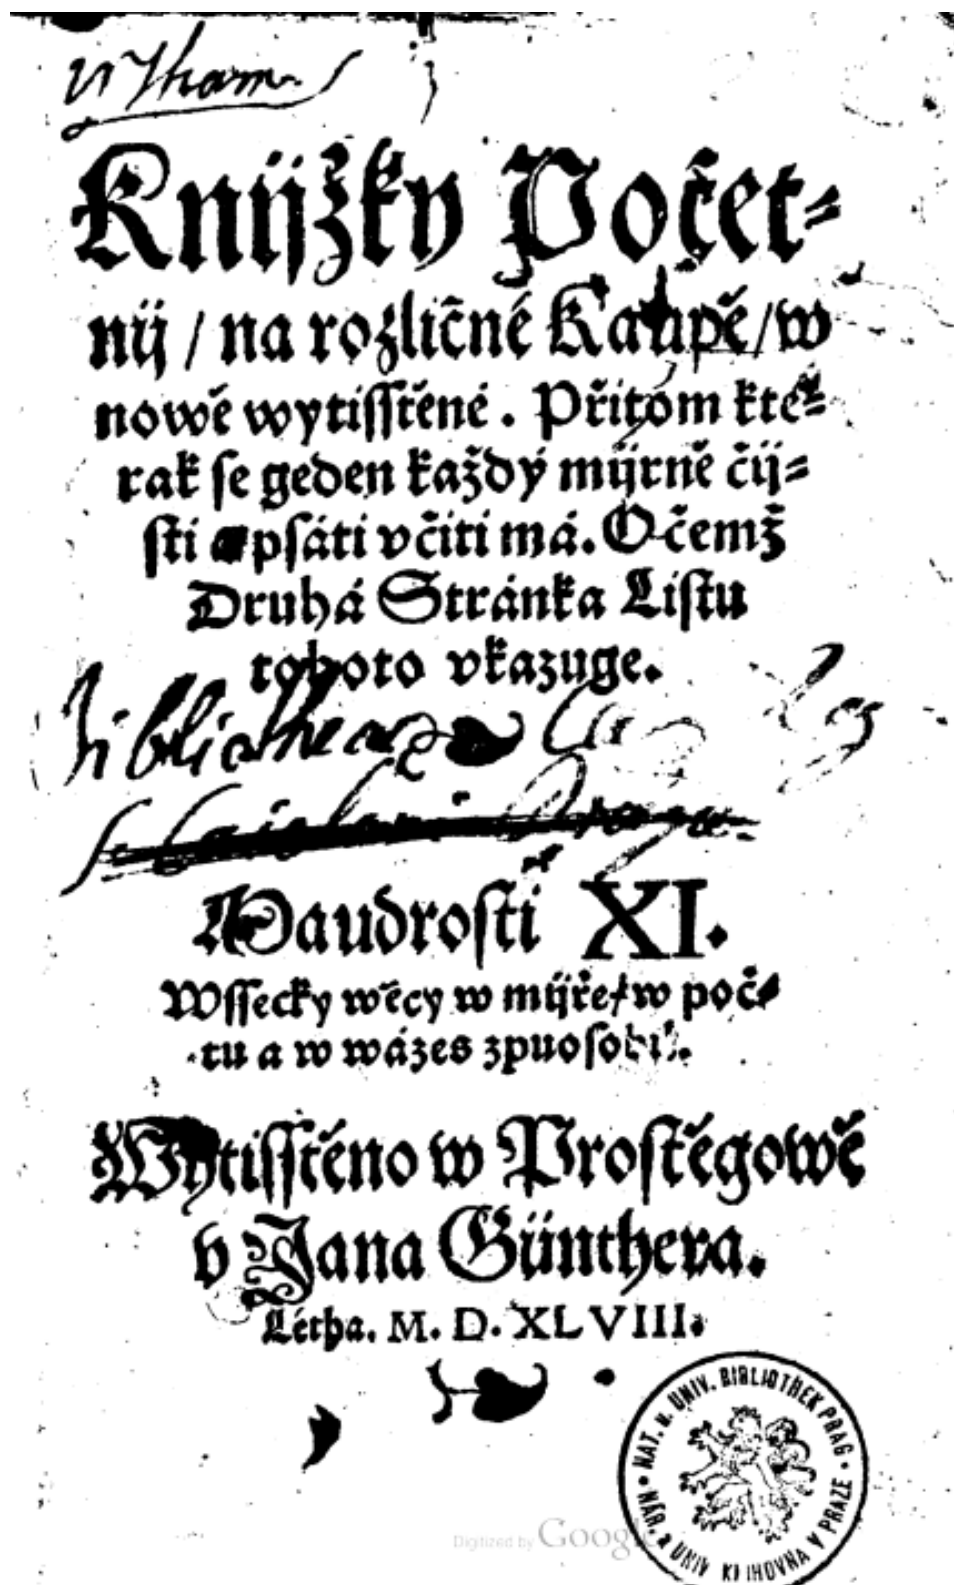 Knijžky Počet-
nij / na rozličné Kaupě / w
nowě wytisstěné. Přitom kte-
rak se geden každý mijrně čij-
sti a psáti včiti má. O čemž
Druhá Stránka Listu
tohoto vkazuge.
Bibliothecae
Maudrosti XI.
Wssecky wěcy w mijře / w poč-
tu a w wázes zpuosobil.
Wytisstěno w Prostěgowě
v Jana Günthera.
Létha. M. D. XLVIII.
NAT. u. UNIV. BIBLIOTHEK PRAG
NÁR. a UNIV. KNIHOVNA V PRAZE
Digitized by Google